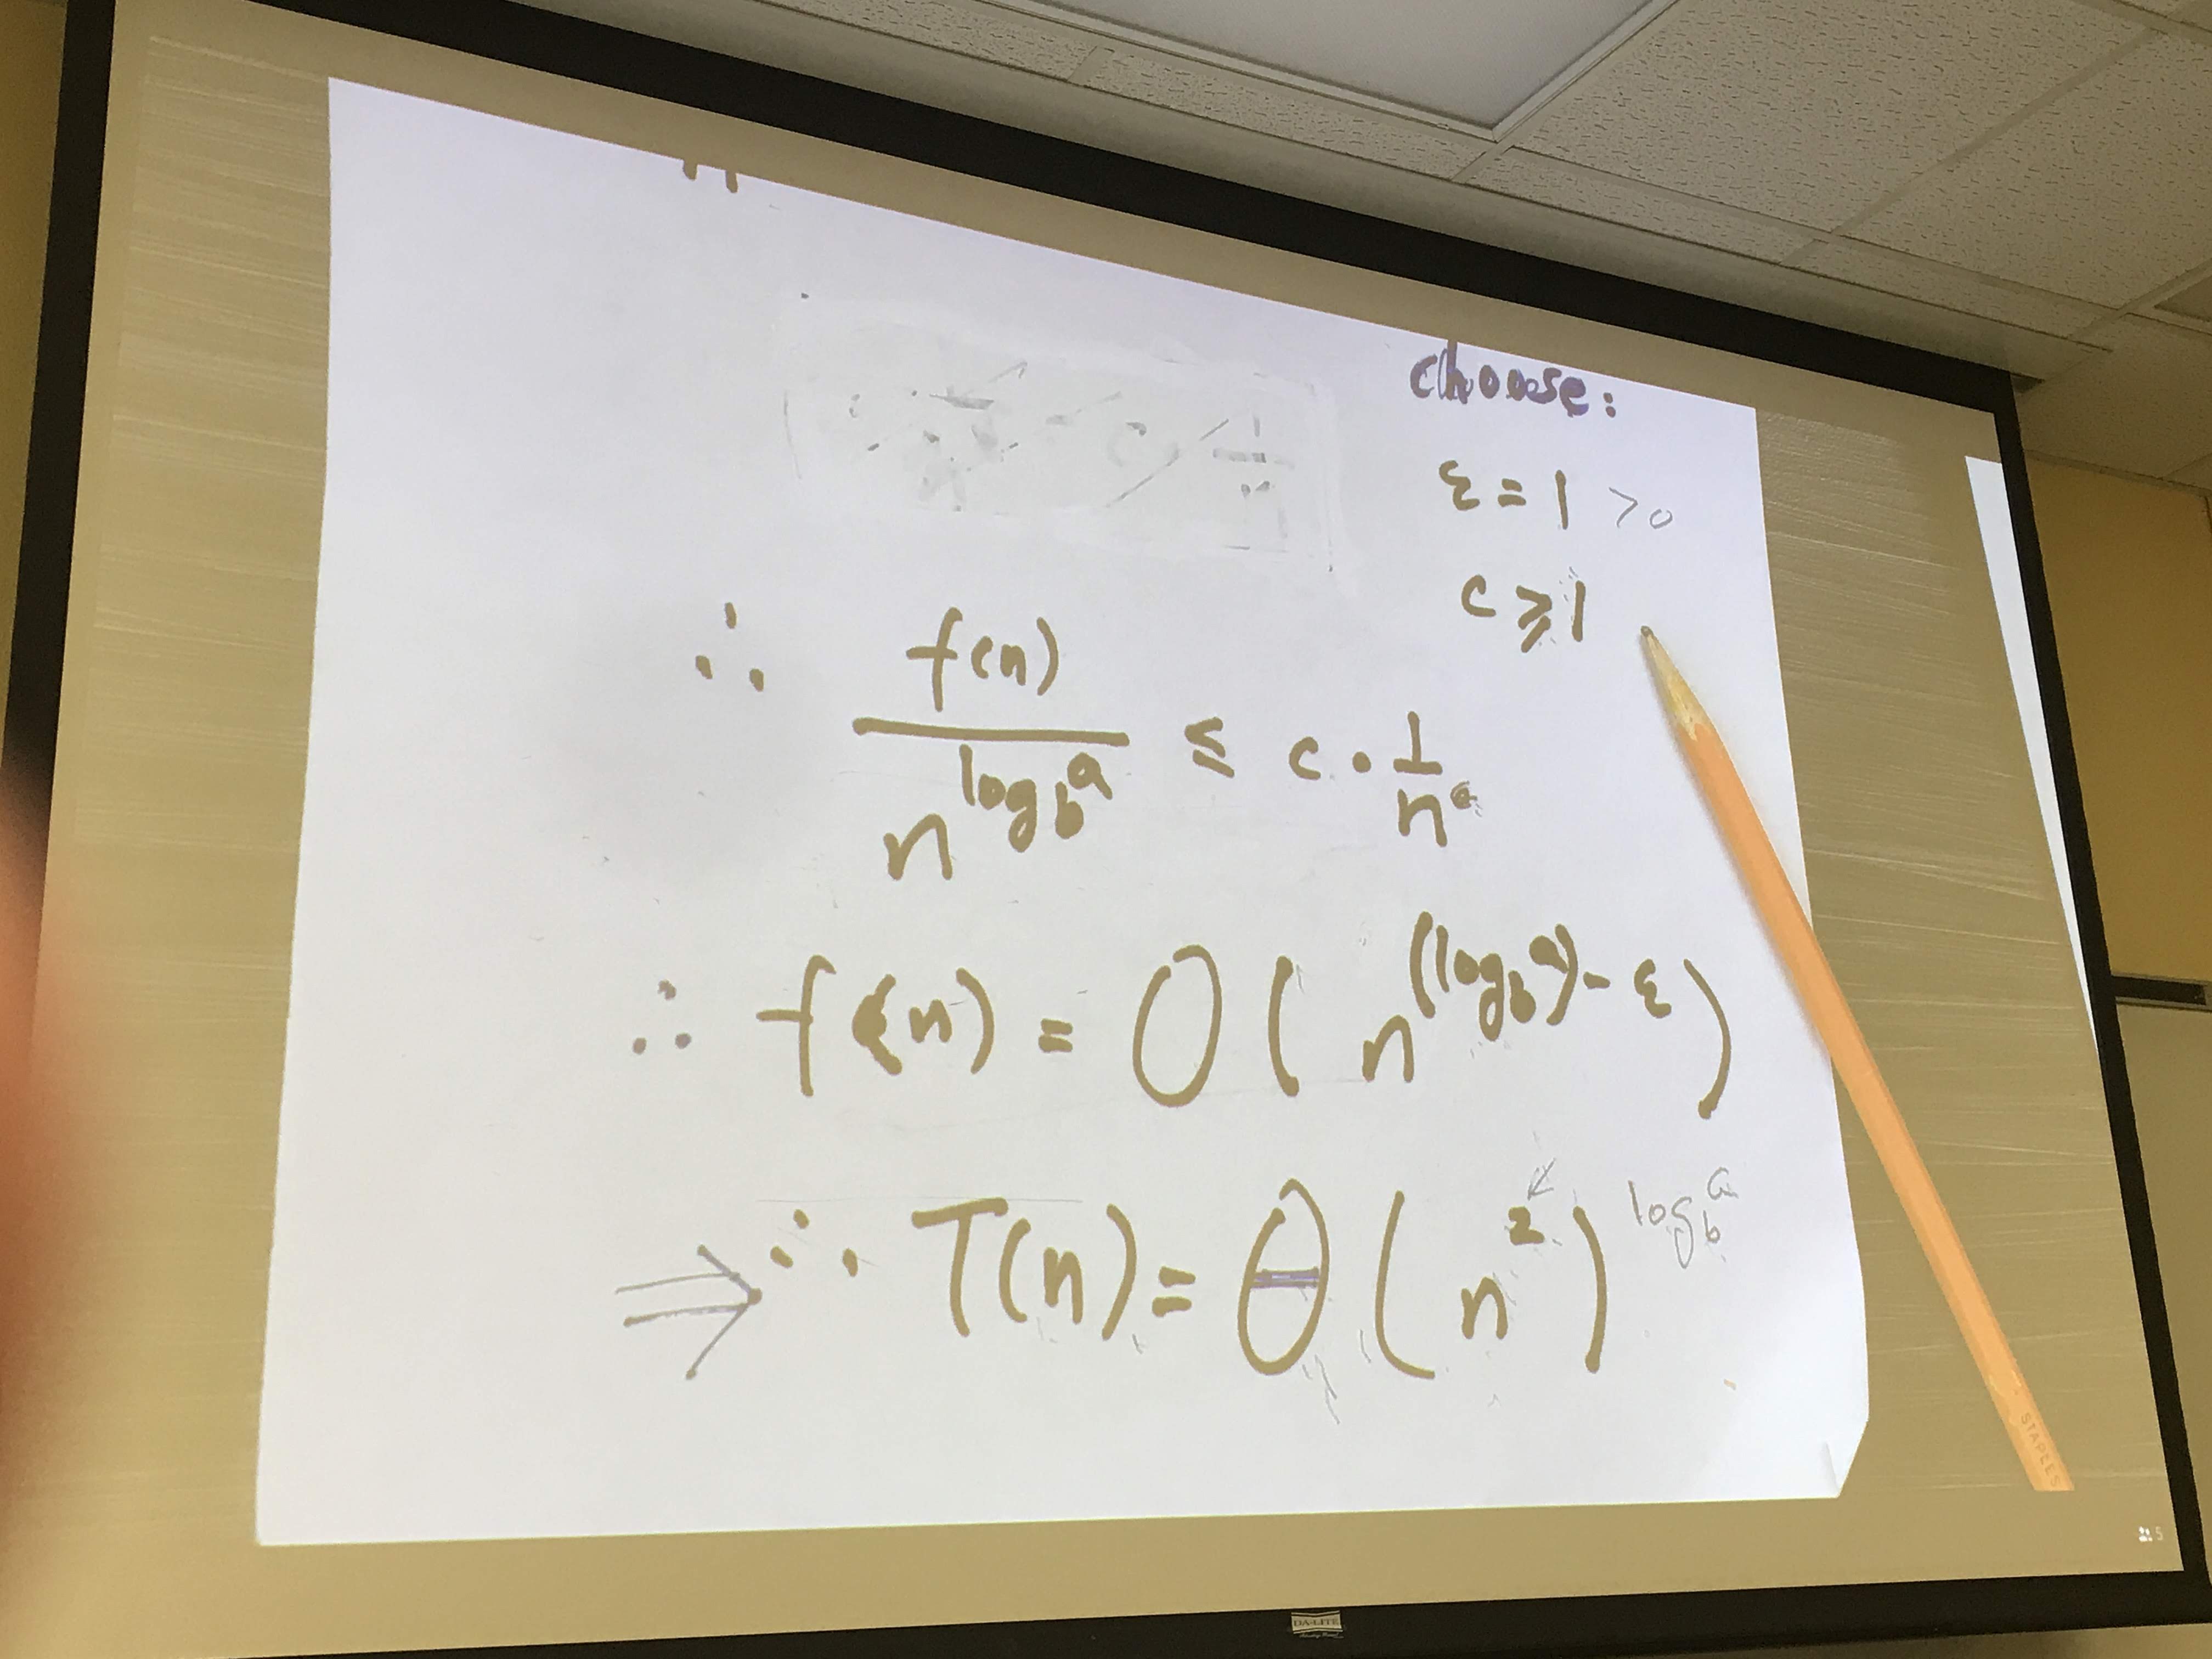 choose:
ε = 1 >0
c ≥ 1
∴ f(n) / n^log_b^a ≤ c · 1/n^ε
∴ f(n) = O ( n^(log_b^a) - ε )
⇒ ∴ T(n) = Θ ( n^2 ) log_b^a
STAPLES
5
DA-LITE